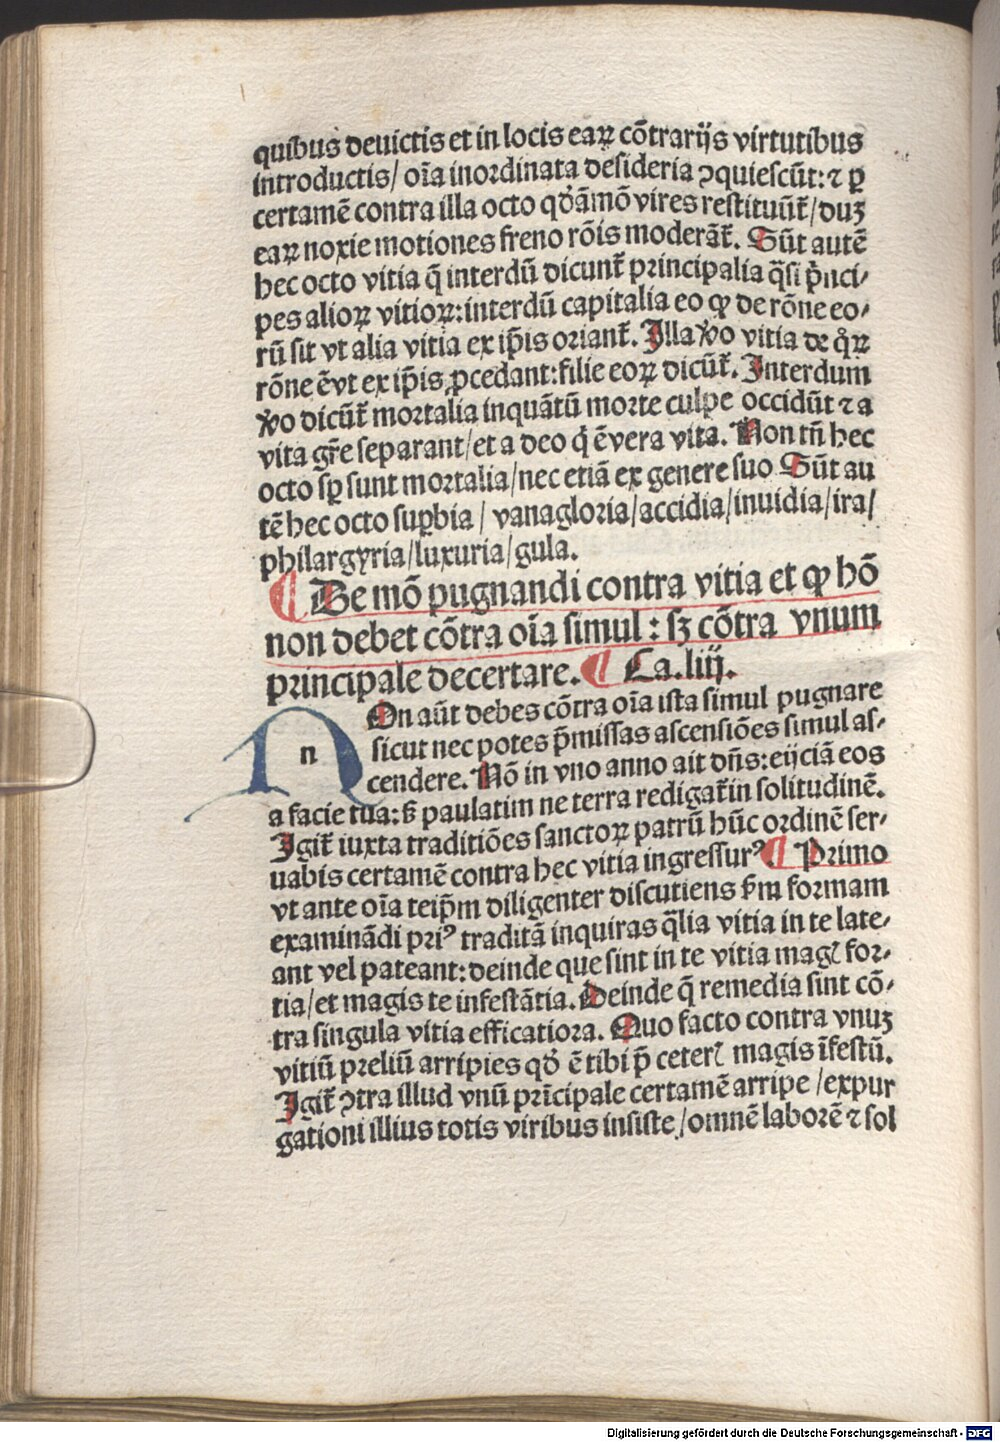 quibus deuictis et in locis eaꝝ cōtrarijs virtutibus
introductis/ oīa inordinata desideria ꝯquiescūt: ⁊ ꝑ
certamē contra illa octo qd̓āmō vires restituūt̄/ duꝫ
eaꝝ noxie motiones freno rōis moderāt̄. Sūt autē
hec octo vitia q̄ interdū dicunt̄ principalia q̄si p̄nci/
pes alioꝝ vitioꝝ: interdū capitalia eo ꝙ de rōne eo/
rū sit vt alia vitia ex ip̄is oriant̄. Illa v̆o vitia de qͦꝝ
rōne ē vt ex ip̄is ꝓcedant: filie eoꝝ dicūt̄. Interdum
v̆o dicūt̄ mortalia inquātū morte culpe occidūt ⁊ a
vita gr̄e separant/ et a deo q̇ ē vera vita. Non tn̄ hec
octo sꝑ sunt mortalia/ nec etiā ex genere suo Sūt au
tē hec octo suꝑbia / vanagloria/ accidia/ inuidia/ ira/
philargyria/ luxuria/ gula.
¶ De mō pugnandi contra vitia et ꝙ hō
non debet cōtra oīa simul: sꝫ cōtra vnum
principale decertare. ¶ Ca. liij.
n On aūt debes cōtra oīa ista simul pugnare
sicut nec potes p̄missas ascensiōes simul as/
cendere. Nō in vno anno ait dn̄s: eijciā eos
a facie tua: sꝫ paulatim ne terra redigat̄ in solitudinē.
Igit̄ iuxta traditiōes sanctoꝝ patrū hūc ordinē ser/
uabis certamē contra hec vitia ingressurꝰ ¶ Primo
vt ante oīa teip̄m diligenter discutiens ẜm formam
examināდi priꝰ traditā inquiras q̄lia vitia in te late/
ant vel pateant: deinde que sint in te vitia magꝭ for/
tia/ et magis te infestātia. Deinde q̄ remedia sint cō/
tra singula vitia efficatiora. Quo facto contra vnuꝫ
vitiū preliū arripies qd̓ ē tibi p̄ ceterꝭ magis īfestū.
Igit̄ ꝯtra illud vnū prīcipale certamē arripe /expur
gationi illius totis viribus insiste/ omnē laborē ⁊ sol